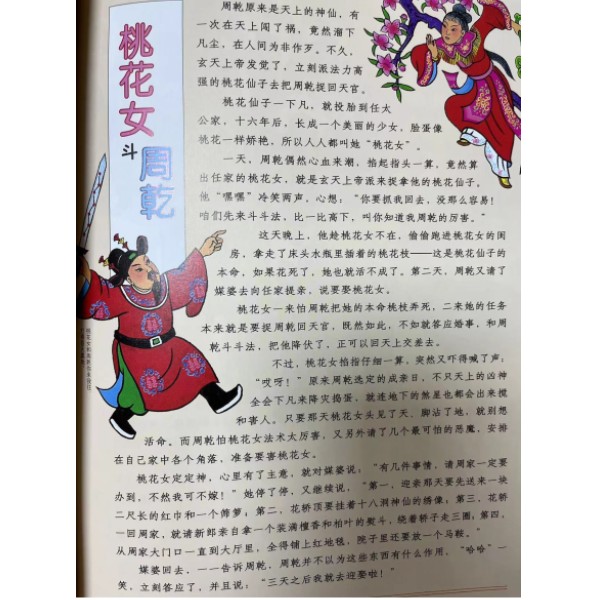 桃花女
斗
周乾
周乾原来是天上的神仙,有
一次在天上闯了祸,竟然溜下
凡尘,在人间为非作歹。不久,
玄天上帝发觉了,立刻派法力高
强的桃花仙子去把周乾捉回天宫。
桃花仙子一下凡,就投胎到任太
公家,十六年后,长成一个美丽的少女,脸蛋像
桃花一样娇艳,所以人人都叫她“桃花女”。
一天,周乾偶然心血来潮,掐起指头一算,竟然算
出任家的桃花女,就是玄天上帝派来捉拿他的桃花仙子。
他“嘿嘿”冷笑两声,心想:“你要抓我回去,没那么容易!
咱们先来斗斗法,比一比高下,叫你知道我周乾的厉害。”
这天晚上,他趁桃花女不在,偷偷跑进桃花女的闺
房,拿走了床头水瓶里插着的桃花枝——这是桃花仙子的
本命,如果花死了,她也就活不成了。第二天,周乾又请了
媒婆去向任家提亲,说要娶桃花女。
桃花女一来怕周乾把她的本命桃枝弄死,二来她的任务
本来就是要捉周乾回天宫,既然如此,不如就答应婚事,和周
乾斗斗法,把他降伏了,正可以回天上交差去。
不过,桃花女掐指仔细一算,突然又吓得喊了声:
“哎呀!”原来周乾选定的成亲日,不只天上的凶神
全会下凡来降灾捣蛋,就连地下的煞星也都会出来搅
和害人。只要那天桃花女头见了天、脚沾了地,就别想
活命。而周乾怕桃花女法术太厉害,又另外请了几个最可怕的恶魔,安排
在自己家中各个角落,准备要害桃花女。
桃花女定定神,心里有了主意,就对媒婆说:“有几件事情,请周家一定要
办到,不然我可不嫁!”她停了停,又继续说,“第一,迎亲那天要先送来一块
二尺长的红巾和一个筛箩;第二,花轿顶要挂着十八洞神仙的绣像;第三,花轿
一回周家,就请新郎亲自拿一个装满檀香和柏叶的熨斗,绕着轿子走三圈;第四,
从周家大门口一直到大厅里,全得铺上红地毯,院子里还要放一个马鞍。”
媒婆回去,一一告诉周乾,周乾并不以为这些东西有什么作用,“哈哈”一
笑,立刻答应了,并且说:“三天之后我就去迎娶啦!”